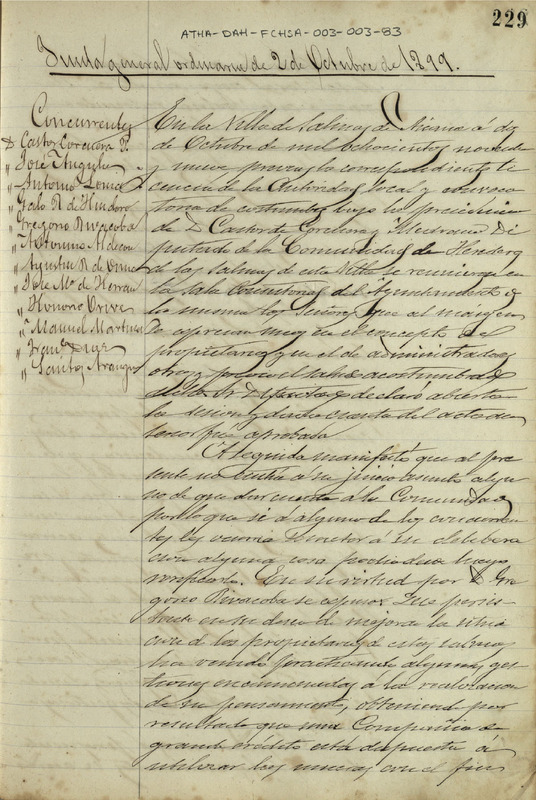 229
ATHA-DAH-FCHSA-003-003-83
Junta general ordinaria de 2 de Octubre de 1899.
Concurrentes
D. Castor Corcuera P.
" José Angulo
" Antonio
" Galo R. de
" Gregorio Rivacoba
" Aldecoa
" Agustin R. de
" José Ma. de Herran
" Honorio Orive
" Manuel Martinez
" Franco. Diaz
" Santos Arangu
En la Villa de Salinas de Añana á dos
de Octubre de mil ochocientos noventa
y nueve previa la correspondiente li
cencia de la Autoridad local y convoca
toria de costumbre bajo la presidencia
de D. Castor de Corcuera y Di
putado de la Comunidad de Herederos
de las salinas de esta Villa se reunieron en
la sala Consistorial del Ayuntamiento de
la misma los Señores que al margen
se espresan unos en el concepto de
propietarios y en el de administradores
otros y
Sr. Diputado declaró abierta
la sesion y dada cuenta del acta an
terior fué aprobada
A seguida manifestó que al pre
sente no tenía á su juicio asunto algu
no de que dar cuenta a la Comunidad
por lo que si á alguno de los concurren
tes les ocurria á su delibera
cion alguna cosa podia desde luego
verificarlo. En su virtud por D. Gre
gorio Rivacoba se espuso: Que persis
tiendo en su deseo de mejorar la situa
cion de los propietarios de estas salinas
ha venido practicando algunas ges
tiones encaminadas á la realizacion
de su pensamiento, obteniendo por
resultado que una Compañia de
grande crédito está dispuesta á
utilizar las mueras con el fin